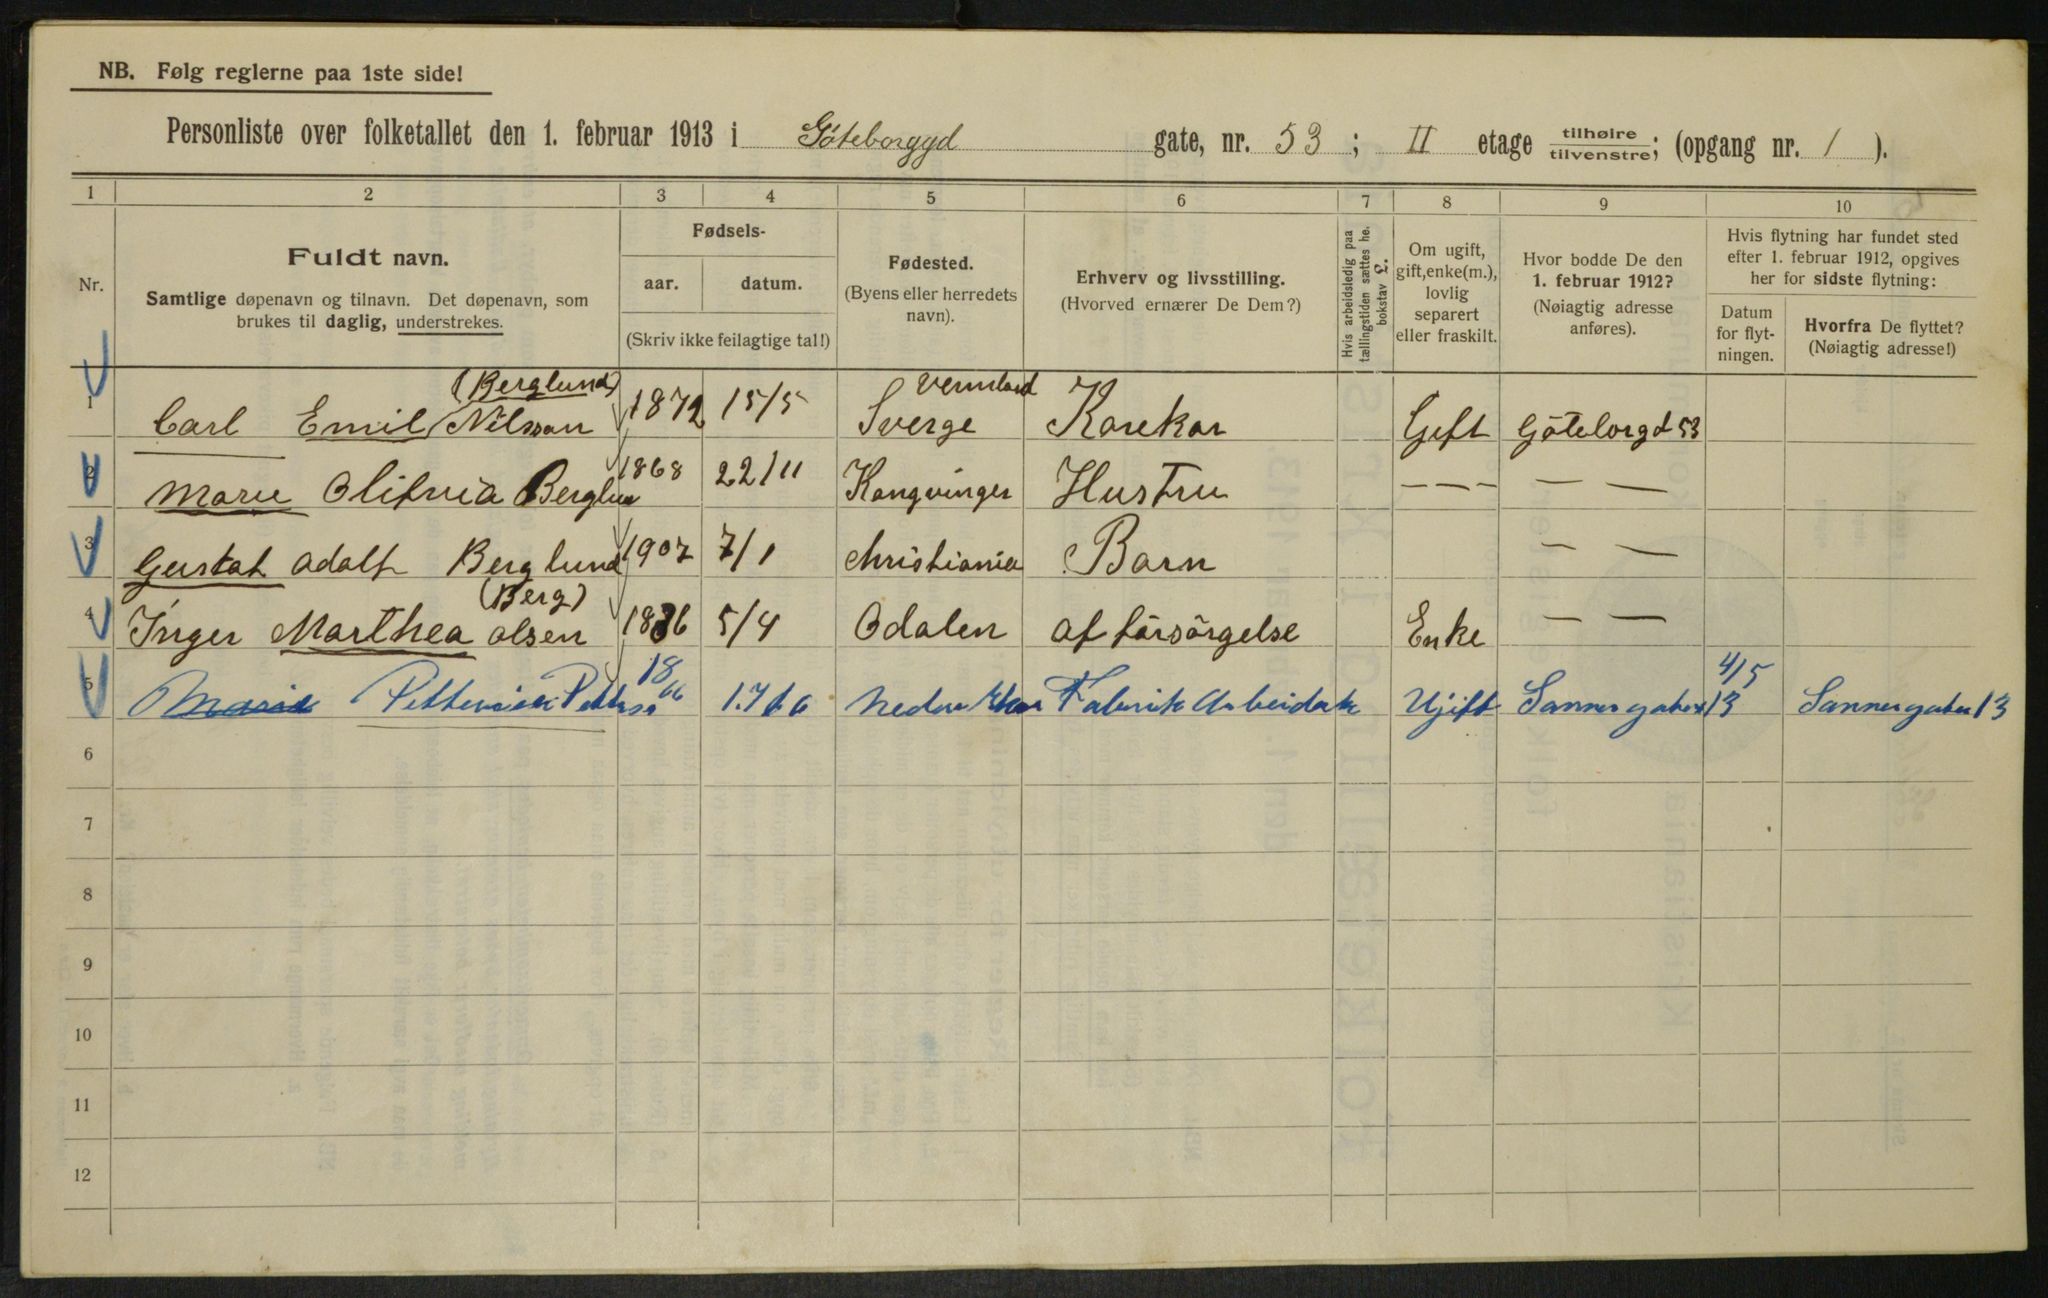 NB. Følg reglerne paa 1ste side!
Personliste over folketallet den 1. februar 1913 i Göteborggd gate, nr. 53 ; II etage tilhøire tilvenstre; (opgang nr. 1 ).
1 2 3 4 5 6 7 8 9 10
Nr.
Fuldt navn.
Samtlige døpenavn og tilnavn. Det døpenavn, som
brukes til daglig, understrekes.
Fødsels-
aar. datum.
(Skriv ikke feilagtige tal!)
Fødested.
(Byens eller herredets
navn).
Erhverv og livsstilling.
(Hvorved ernærer De Dem?)
Hvis arbeidsledig paa
tællingstiden sættes he.
bokstav £.
Om ugift,
gift, enke(m.),
lovlig
separert
eller fraskilt.
Hvor bodde De den
1. februar 1912?
(Nøiagtig adresse
anføres).
Hvis flytning har fundet sted
efter 1. februar 1912, opgives
her for sidste flytning:
Datum
for flyt-
ningen.
Hvorfra De flyttet?
(Nøiagtig adresse!)
(Berglund) Vermland
1 Carl Emil Nilsson 1872 15/5 Sverge Korekar Gift Göteborgd 53
2 Marie Olifvia Berglun 1868 22/11 Kongvinger Hustru — — — — —
3 Gustaf Adolf Berglund 1907 7/1 Christiania Barn — —
(Berg)
4 Inger Marthea Olsen 1836 5/4 Odalen af försörgelse Enke — —
5 Marie 18 66 Ugift Sannergaten 13 4/5 Sannergaten 13
6
7
8
9
10
11
12